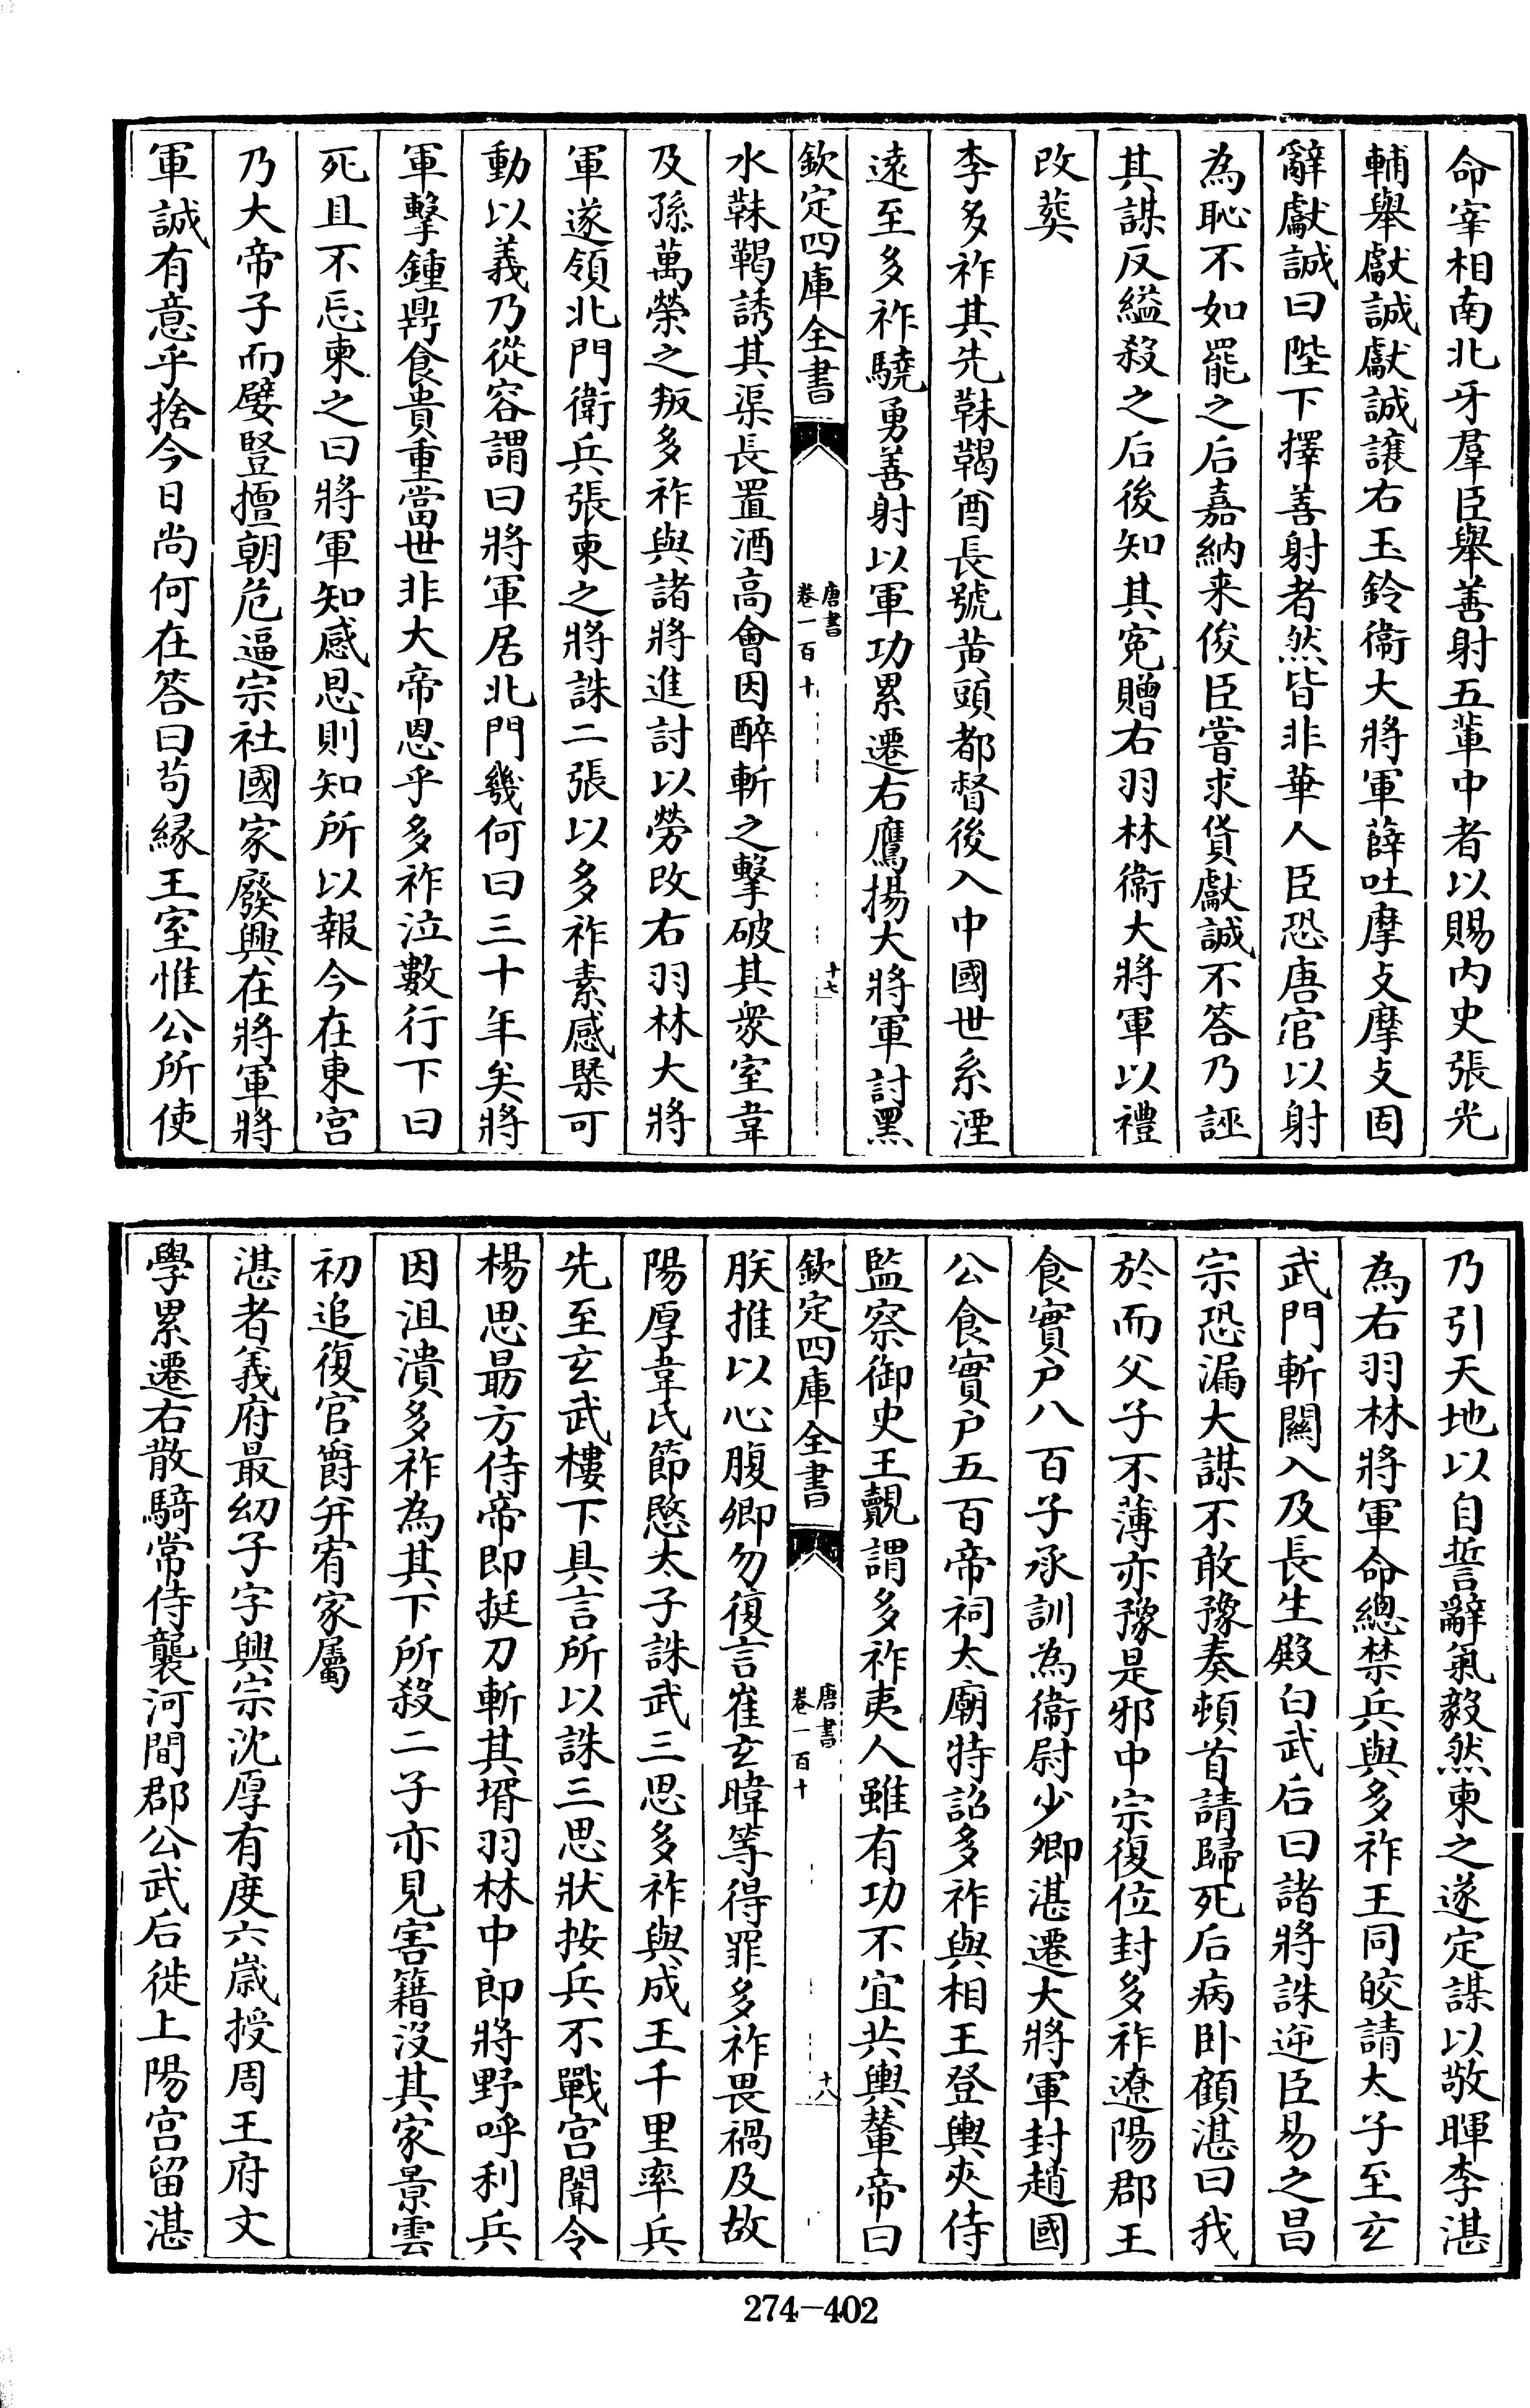 命宰相南北牙羣臣舉善射五輩中者以賜内史張光
輔舉獻誠獻誠讓右玉鈐衞大將軍薛吐摩攴摩攴固
辭獻誠曰陛下擇善射者然皆非華人臣恐唐官以射
為恥不如罷之后嘉納来俊臣嘗求貨獻誠不答乃誣
其謀反縊殺之后後知其寃贈右羽林衞大將軍以禮
改葬
李多祚其先靺鞨酋長號黄頭都督後入中國世系湮
遠至多祚驍勇善射以軍功累遷右鷹揚大將軍討黑
欽定四庫全書
唐書
卷一百十
十七
水靺鞨誘其渠長置酒高會因醉斬之擊破其衆室韋
及孫萬榮之叛多祚與諸將進討以勞改右羽林大將
軍遂領北門衛兵張柬之將誅二張以多祚素感槩可
動以義乃從容謂曰將軍居北門幾何曰三十年矣將
軍擊鍾鼎食貴重當世非大帝恩乎多祚泣數行下曰
死且不忘柬之曰將軍知感恩則知所以報今在東宫
乃大帝子而嬖豎擅朝危逼宗社國家廢興在將軍將
軍誠有意乎捨今日尚何在答曰苟緣王室惟公所使
乃引天地以自誓辭氣毅然柬之遂定謀以敬暉李湛
為右羽林將軍命總禁兵與多祚王同皎請太子至玄
武門斬關入及長生殿白武后曰諸將誅逆臣易之昌
宗恐漏大謀不敢豫奏頓首請歸死后病卧顧湛曰我
於而父子不薄亦豫是邪中宗復位封多祚遼陽郡王
食實户八百子承訓為衞尉少卿湛遷大將軍封趙國
公食實户五百帝祠太廟特詔多祚與相王登輿夾侍
監察御史王覿謂多祚夷人雖有功不宜共輿輦帝曰
欽定四庫全書
唐書
卷一百十
十八
朕推以心腹卿勿復言崔玄暐等得罪多祚畏禍及故
陽厚韋氏節愍太子誅武三思多祚與成王千里率兵
先至玄武樓下具言所以誅三思狀按兵不戰宫闈令
楊思朂方侍帝即挺刀斬其壻羽林中郎將野呼利兵
因沮潰多祚為其下所殺二子亦見害籍沒其家景雲
初追復官爵并宥家屬
湛者義府最幼子字興宗沈厚有度六歲授周王府文
學累遷右散騎常侍襲河間郡公武后徙上陽宫留湛
274-402